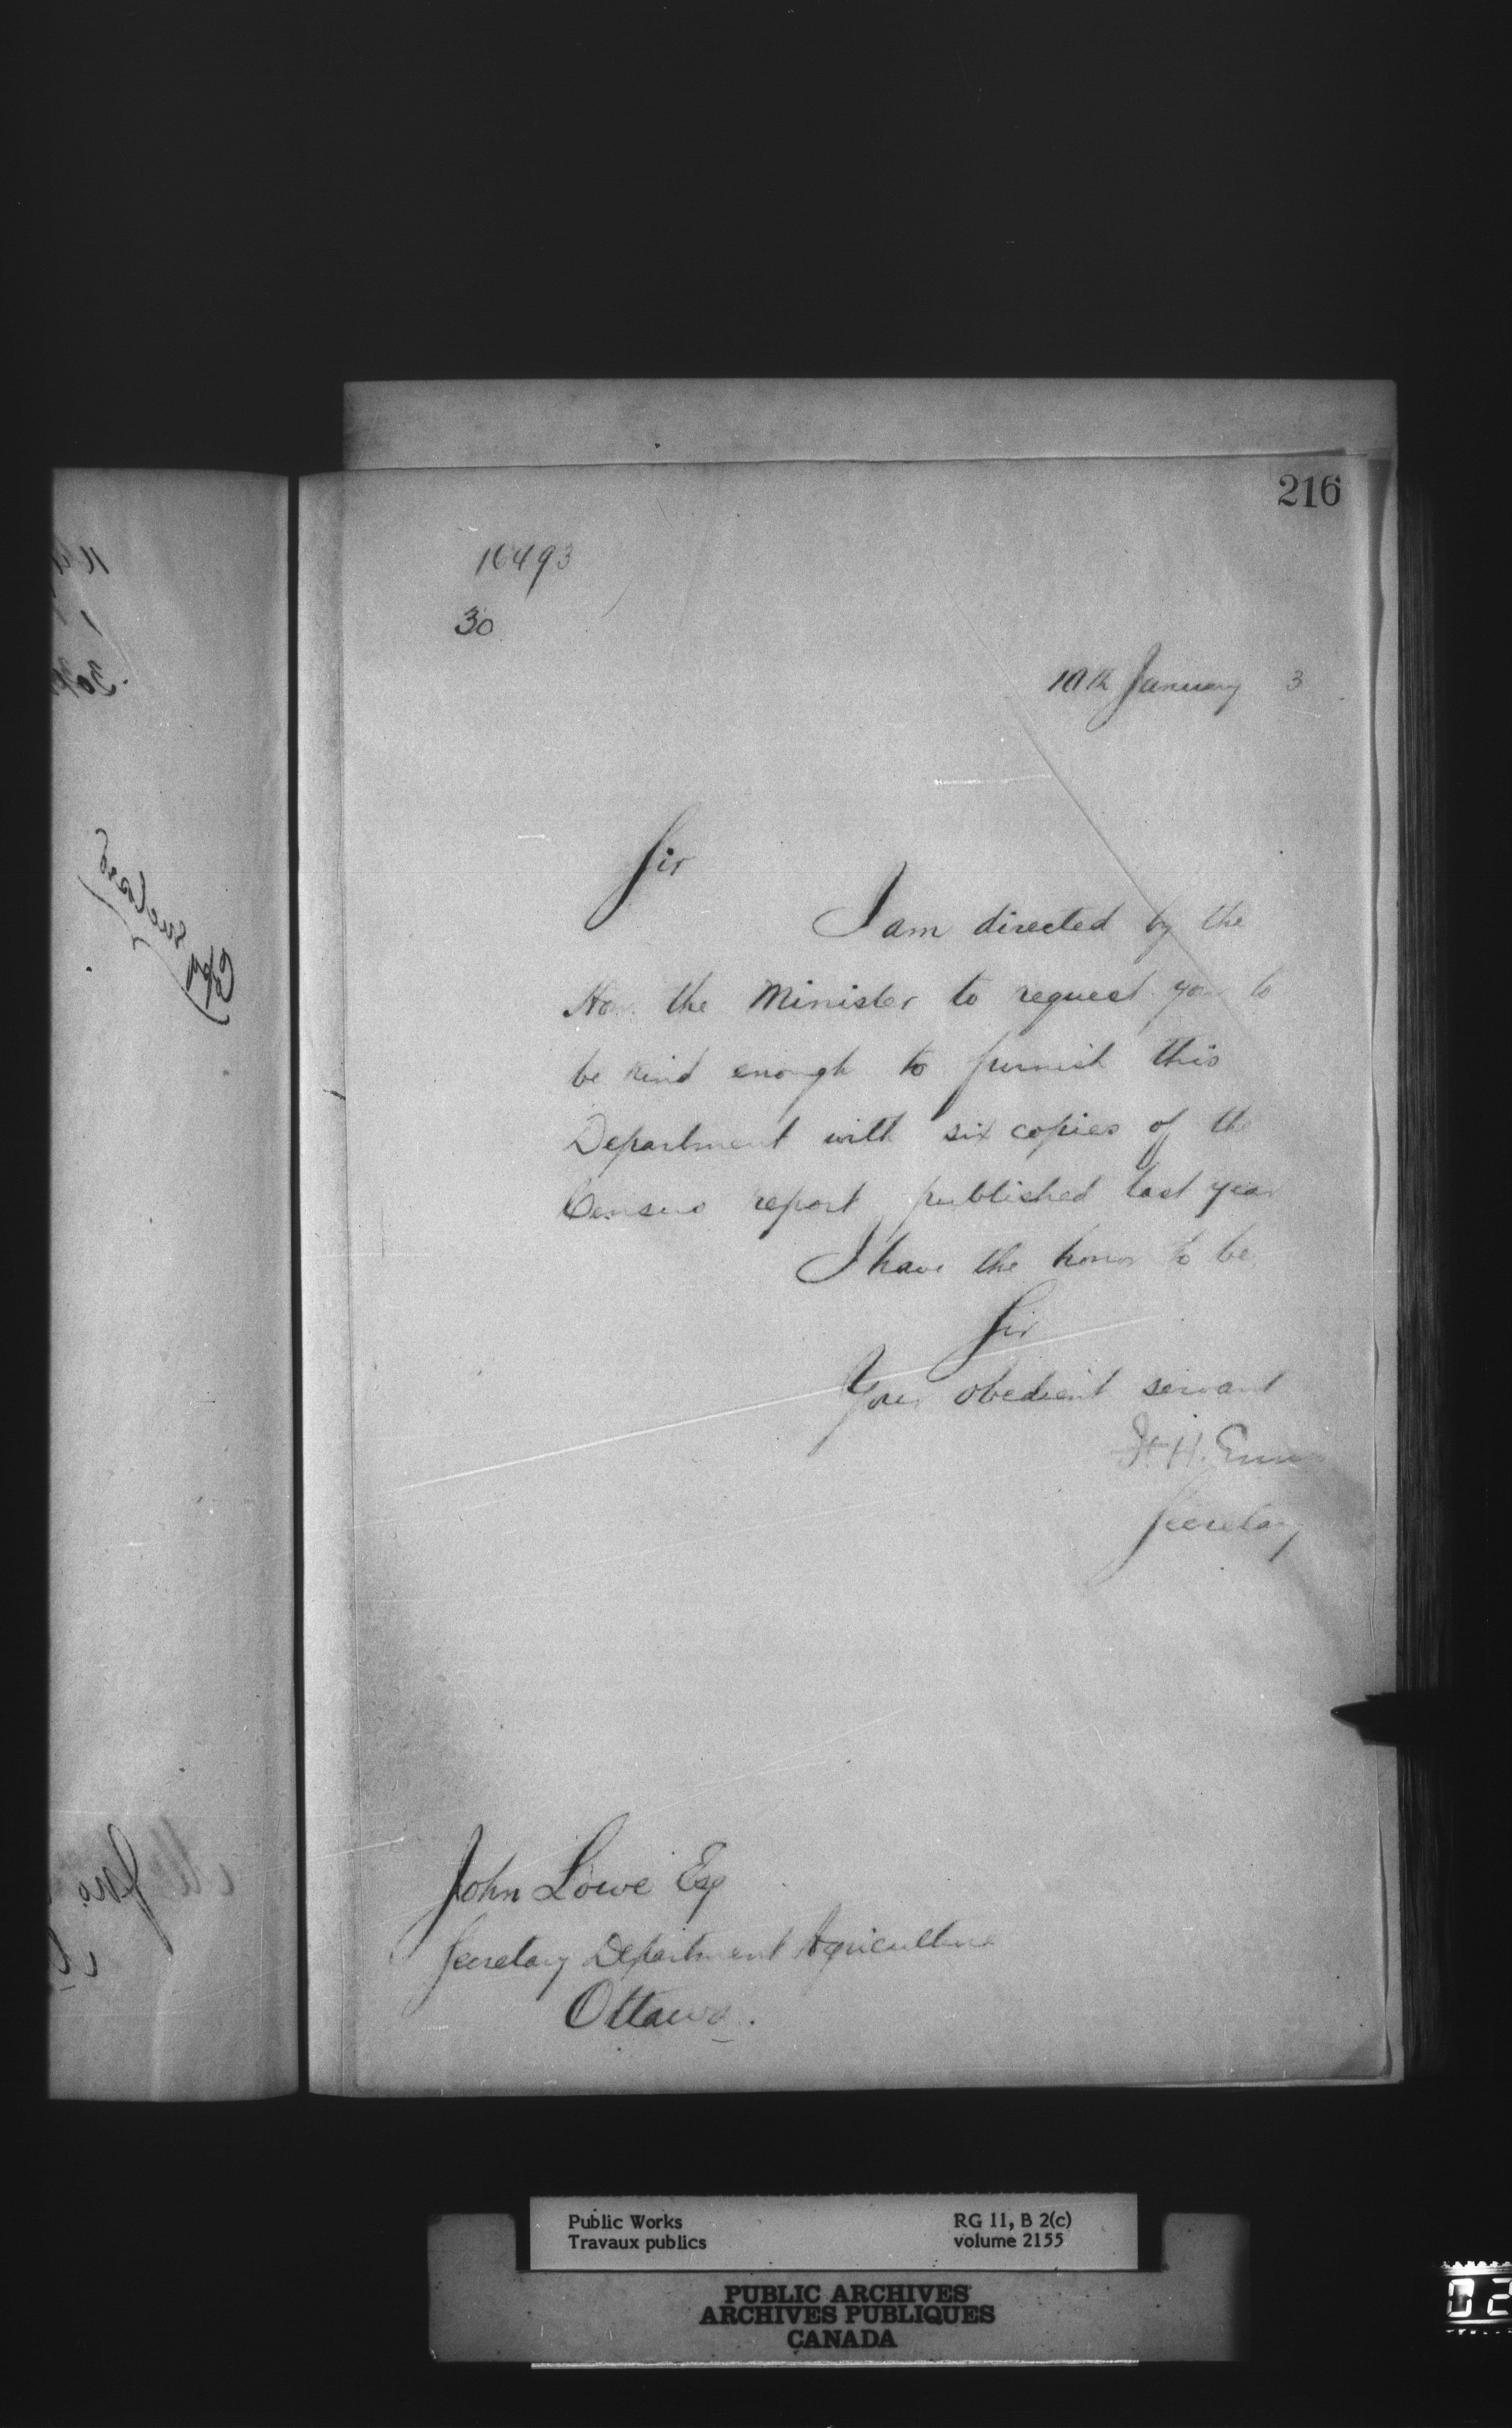 216
10493
30
10th January 3
Sir
I am directed by the
Hon. the Minister to request you to
be kind enough to furnish this
Department with six copies of the
Census report published last year
I have the honor to be
Sir
Your obedient servant
F. H. Ennis
Secretary
John Lowe Esq
Secretary Department Agriculture
Ottawa.
Public Works
Travaux publics
RG 11, B 2(c)
volume 2155
PUBLIC ARCHIVES
ARCHIVES PUBLIQUES
CANADA
02